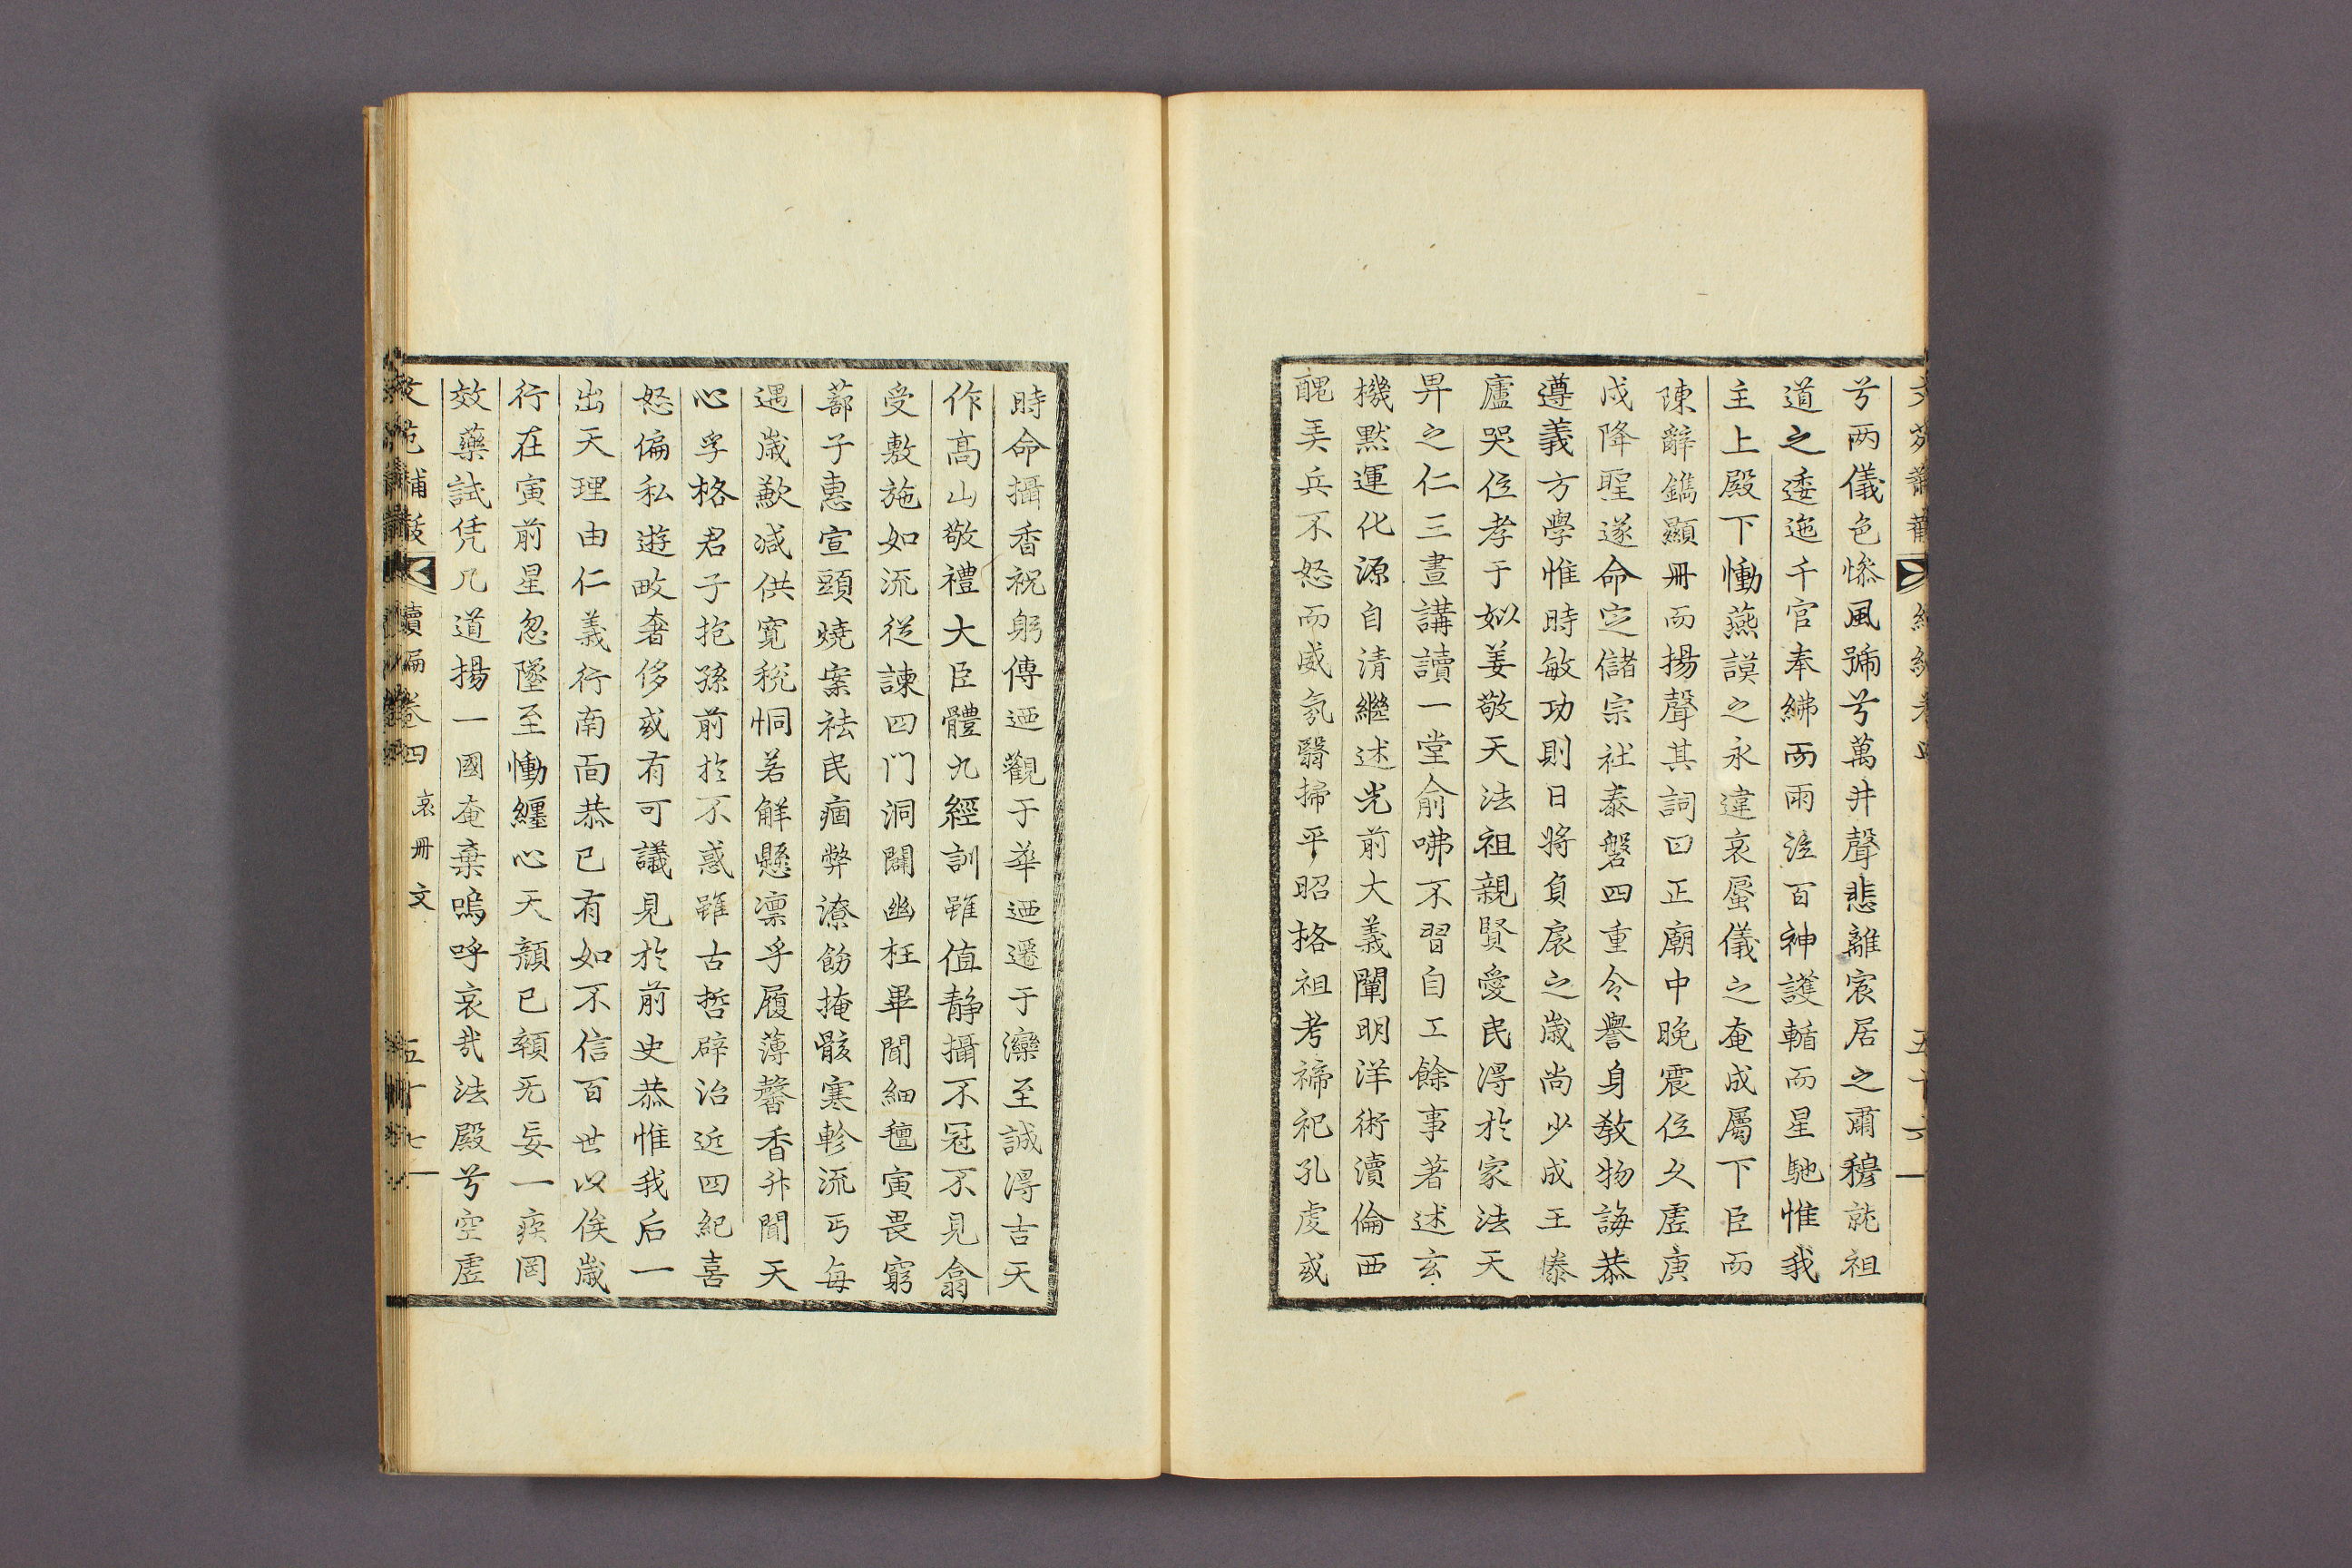 兮两儀色慘風號兮萬井聲悲離宸居之肅穆就祖
道之逶迤千官奉紼而雨泣百神護輴而星馳惟我
主上殿下慟燕謨之永違哀蜃儀之奄成屬下臣而
陳辭鐫顯冊而揚聲其詞曰正廟中晚震位久虛庚
戌降聖遂命定儲宗社泰磐四重令譽身教物誨恭
遵義方學惟時敏功則日將負扆之歲尚少成王
廬哭位孝于姒姜敬天法祖親賢愛民得於家法天
畀之仁三晝講讀一堂俞咈不習自工餘事著述玄
機黙運化源自清繼述光前大義闡明洋術瀆倫西
醜弄兵不怒而威氛翳掃平昭格祖考禘祀孔虔或
文苑黼黻
續編卷四
五十六
時命攝香祝躬傳迺觀于華迺遷于灤至誠得吉天
作高山敬禮大臣體九經訓雖值静攝不冠不見翕
受敷施如流從諫四门洞闢幽枉畢聞細氊寅畏窮
蔀子惠宣頭燒案祛民痼弊潦飭掩骸寒軫流丐每
遇歲歉减供寬稅恫若解懸凛乎履薄馨香升聞天
心孚格君子抱孫前於不惑雖古哲辟治近四紀喜
怒偏私遊畋奢侈或有可議見於前史恭惟我后一
出天理由仁義行南面恭已有如不信百世以俟歲
行在寅前星忽墜至慟纏心天顏已顇无妄一疾罔
效藥試凭几道揚一國奄棄嗚呼哀㢤法殿兮空虛
文苑黼黻
續編卷四
哀冊文
五十七